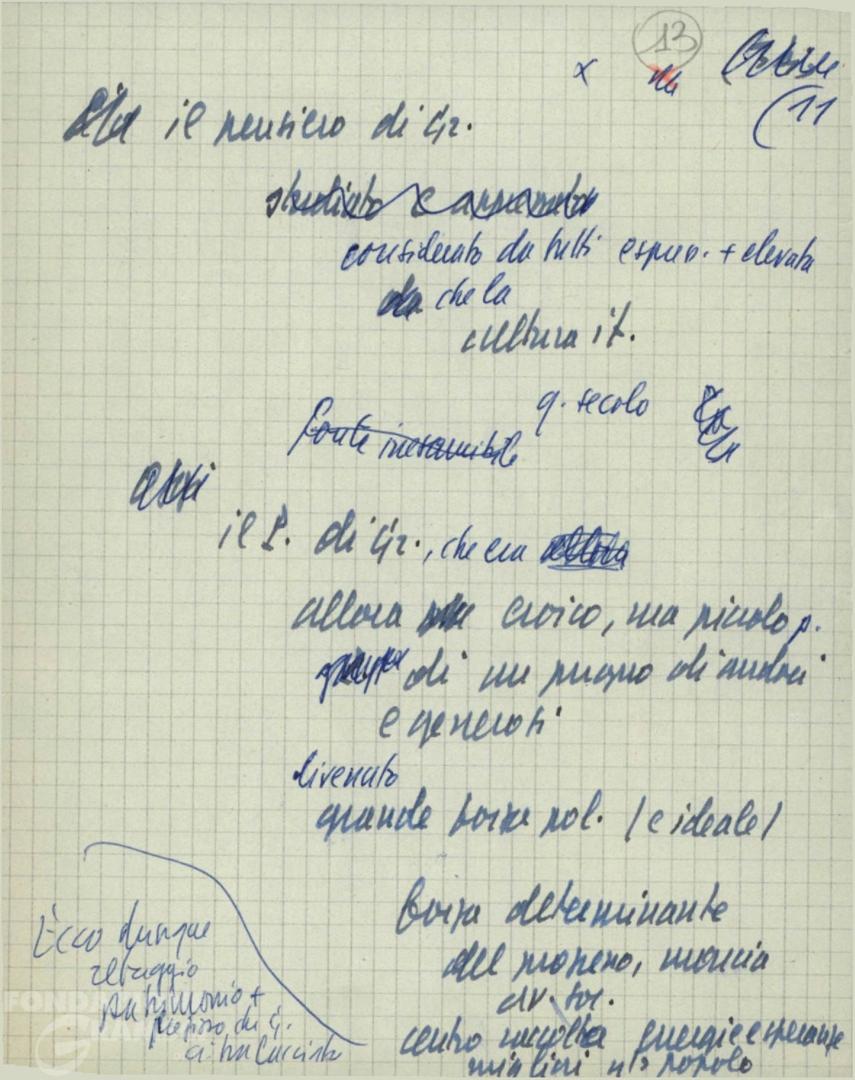 13
x
(11
il pensiero di Gr.
studiato e
considerato da tutti espres. + elevata
che la
cultura it.
q. secolo
fonte inesauribile
anzi
il P. di Gr., che era allora
allora eroico, ma piccolo p.
gruppo di un pugno di audaci
e generosi
divenuto
grande forza pol. (e ideale)
forza determinante
del progresso, marcia
av. soc.
centro raccolta energie e speranze
migliori n/s popolo
Ecco dunque
retaggio
patrimonio +
prezioso di G.
ci ha lasciato